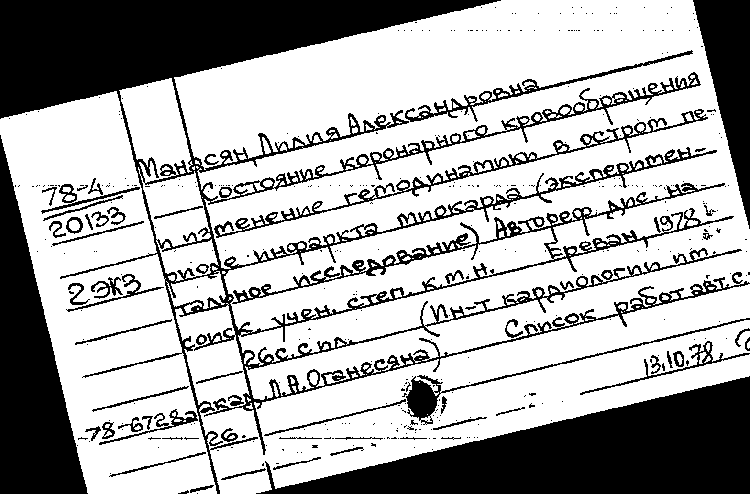 Манасян, Лилия Александровна
78-4
20133
Состояние коронарного кровообращения
и изменение гемодинамики в остром пе-
риоде инфаркта миокарда (эксперимен-
2 экз
тальное исследование) Автореф. дис. на
соиск. учен. степ. к.м.н. Ереван, 1978.
26 с. с ил. (Ин-т кардиологии им.
акад. Л.А. Оганесяна). Список работ авт. с.
26.
78-6728а
13.10.78.